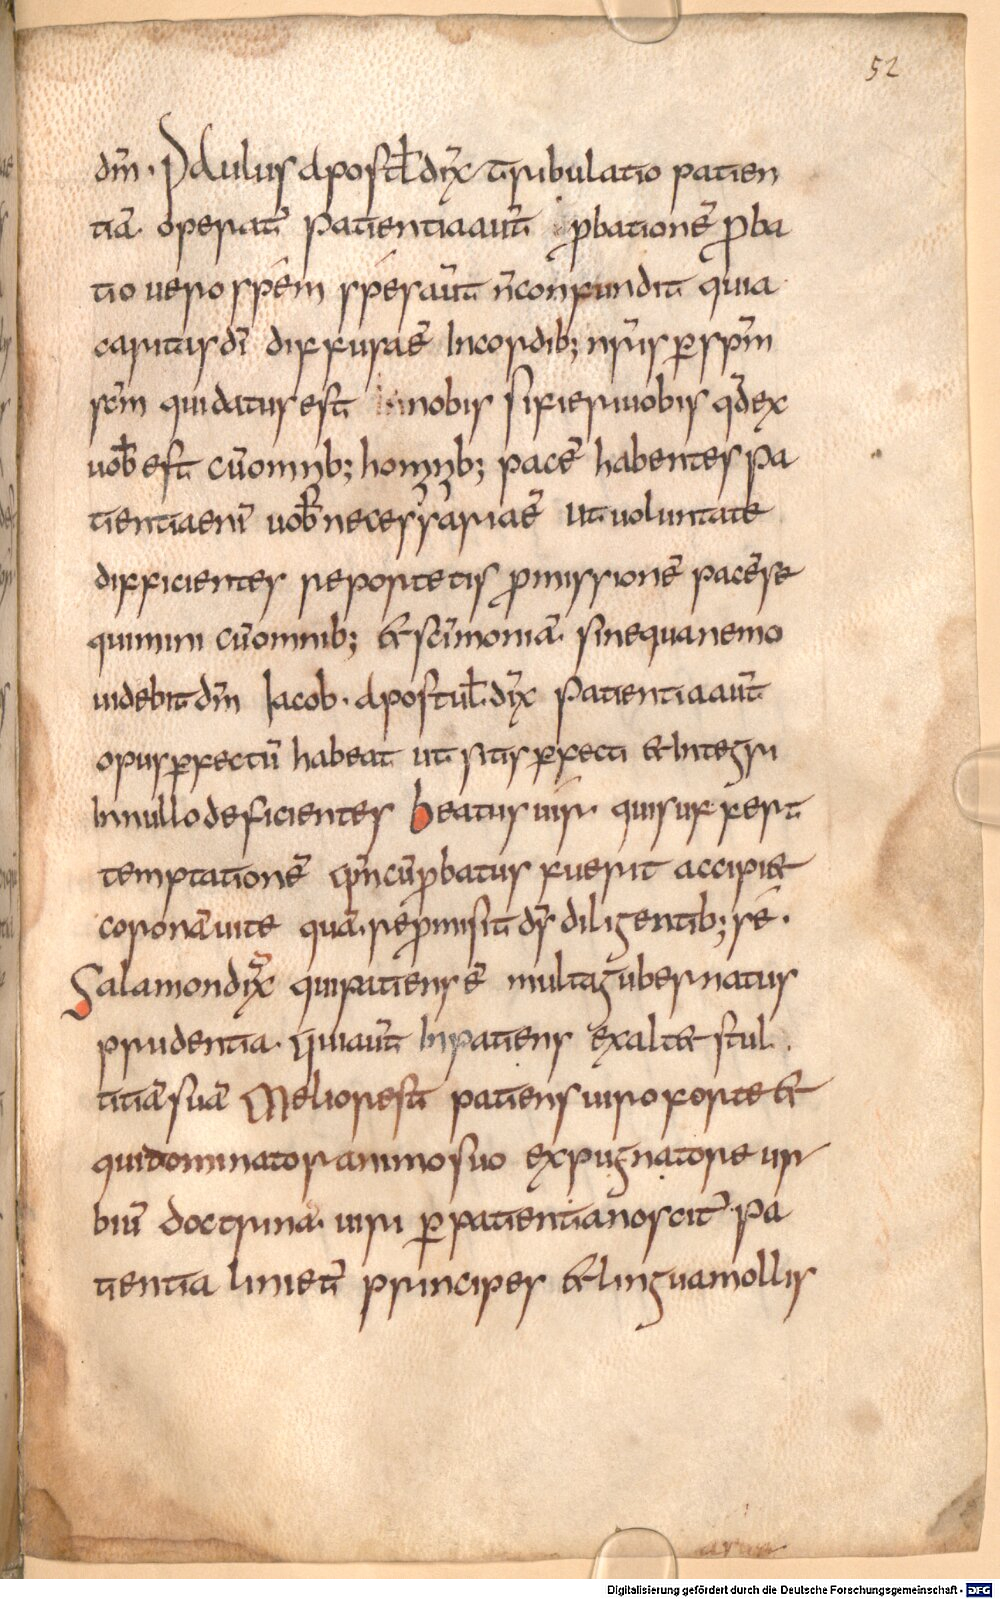 52
dn̄i · Paulus apostl̄ dix̄ tribulatio patien
tiā · operat̄ patientia aut̄ ꝓbationē ꝓba
tio uero spem̄ spes aut̄ n̄ confundit quia
caritas dī diffusa ē In cordib; nr̄is ꝑ spm̄
scm̄ qui datus est nobis si fieri uobis qđ ex
uob̄ est cū omnib; hominib; pacē habentes pa
tientia eni̅ uob̄ necessaria ē ut uoluntate
dī fficientes reportetis ꝓmissionē pacē se
quimini cū omnib; & scīmoniā · sine qua nemo
uidebit dm̄ Iacob · apostul̄ · dix̄ patientia aut̄
opus ꝑfectū habeat ut sitis ꝑfecti & Integri
In nullo deficientes beatus uir · qui suffert
temptationē qm̄ cū ꝓbatus fuerit accipi&
coronā uite quā · reꝓmisit ds̄ diligentib; sē ·
Salamon dix̄ qui patiens ē multa gubernatur
prudentia · Qui aut̄ Inpatiens exalt& stul
titiā suā Melior est patiens uiro forte &
qui dominator animo suo expugnatore ur
biū doctrina · uiri ꝑ patientia noscit̄ · pa
tientia liniet̄ princeps & lingua mollis
Digitalisierung gefördert durch die Deutsche Forschungsgemeinschaft - DFG